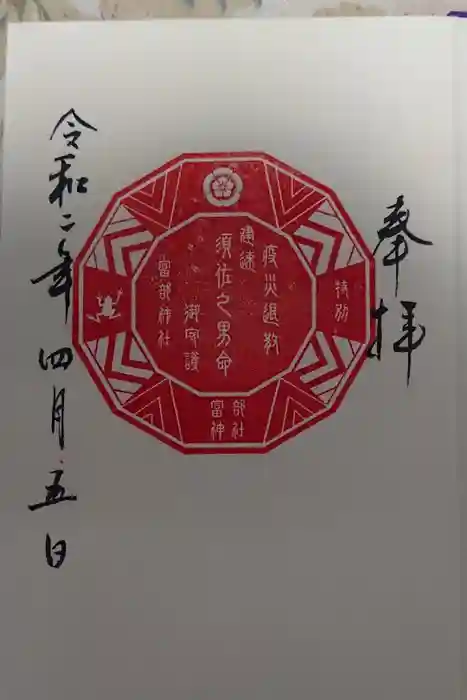 奉拝
特別
疫災退散
建速
須佐之男命
御守護
富部神社
富部
神社
令和二年四月五日